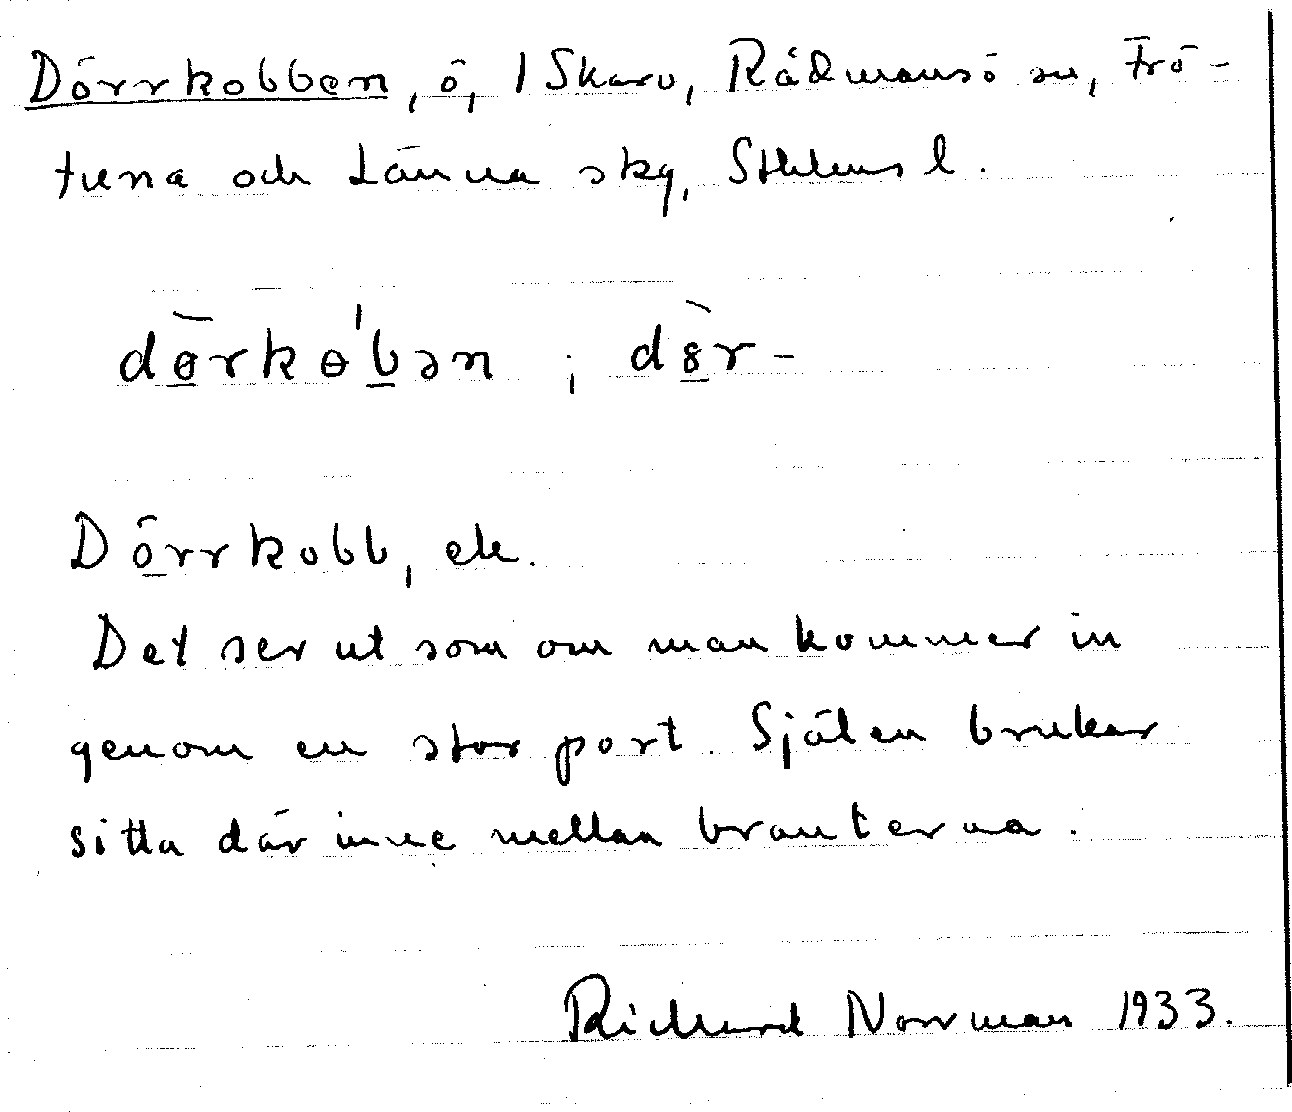 Dörrkobben, ö, 1 Skarv, Rådmansö sn, Frö-
tuna och Länna skg, Sthlms l.
dørkɵ'bən ; dør-
Dörrkobb, ek.
Det ser ut som om man kommer in
genom en stor port. Själen brukar
sitta där inne mellan branterna.
Richard Norrman 1933.